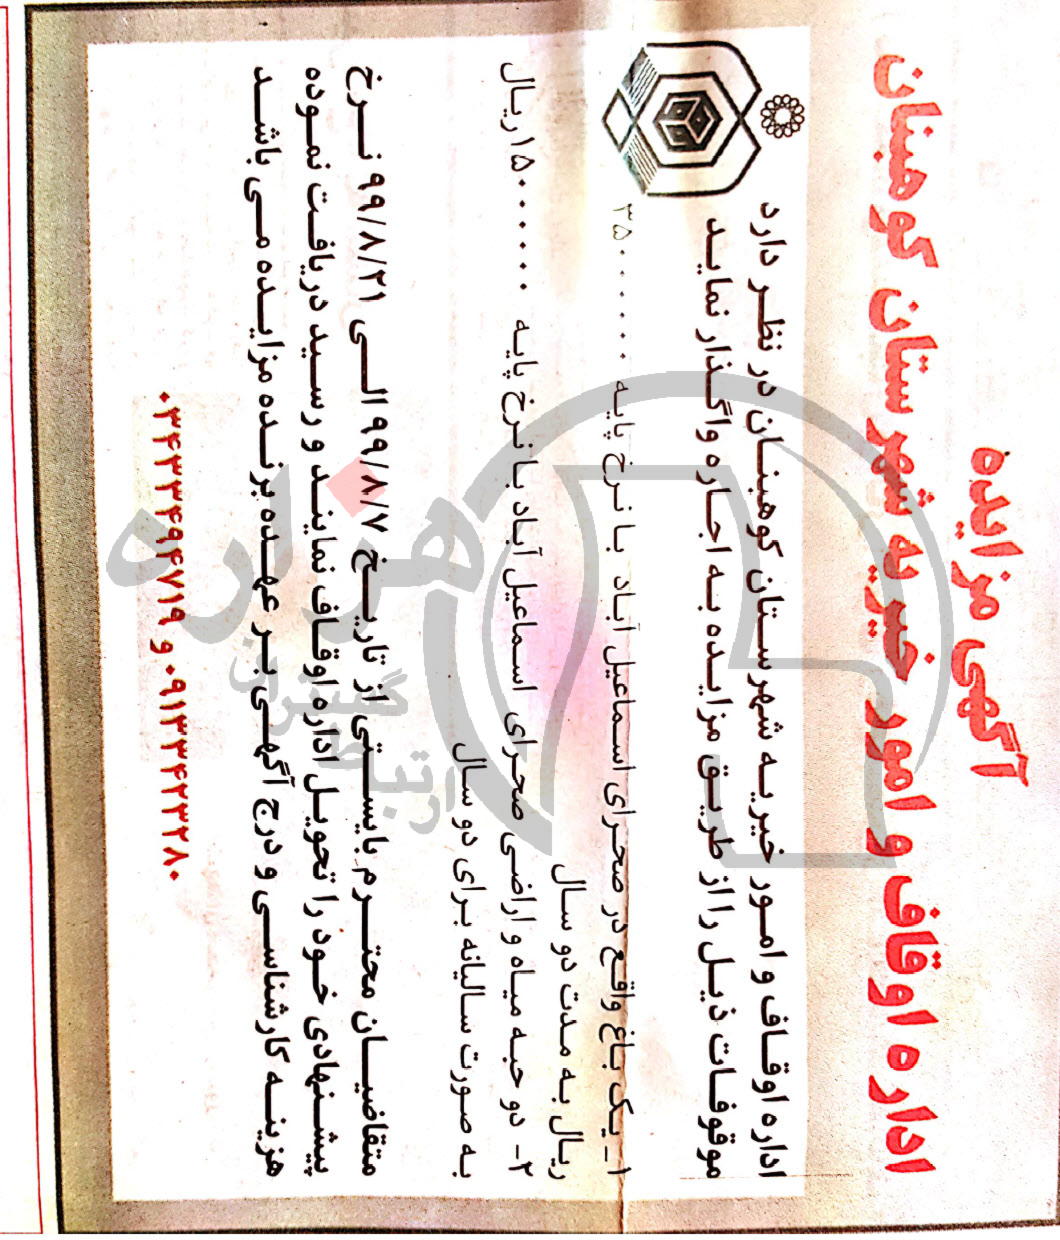 آگهی مزایده
اداره اوقاف و امور خیریه شهرستان کوهبنان
اداره اوقاف و امور خیریه شهرستان کوهبنان در نظر دارد
موقوفات ذیل را از طریق مزایده به اجاره واگذار نماید
۱_ یک باغ واقع در صحرای اسماعیل آباد با نرخ پایه ۳۵۰۰۰۰۰۰
ریال به مدت دو سال
۲- دو حبه میاه و اراضی صحرای اسماعیل آباد با نرخ پایه ۱۵۰۰۰۰۰۰ریال
به صورت سالیانه برای دو سال
متقاضیان محترم بایستی از تاریخ ۹۹/۸/۷ الی ۹۹/۸/۲۱ نرخ
پیشنهادی خود را تحویل اداره اوقاف نمایند و رسید دریافت نموده
هزینه کارشناسی و درج آگهی بر عهده برنده مزایده می باشد
۰۹۱۳۳۴۲۳۲۸۰ و ۰۳۴۳۳۴۹۴۷۱۹